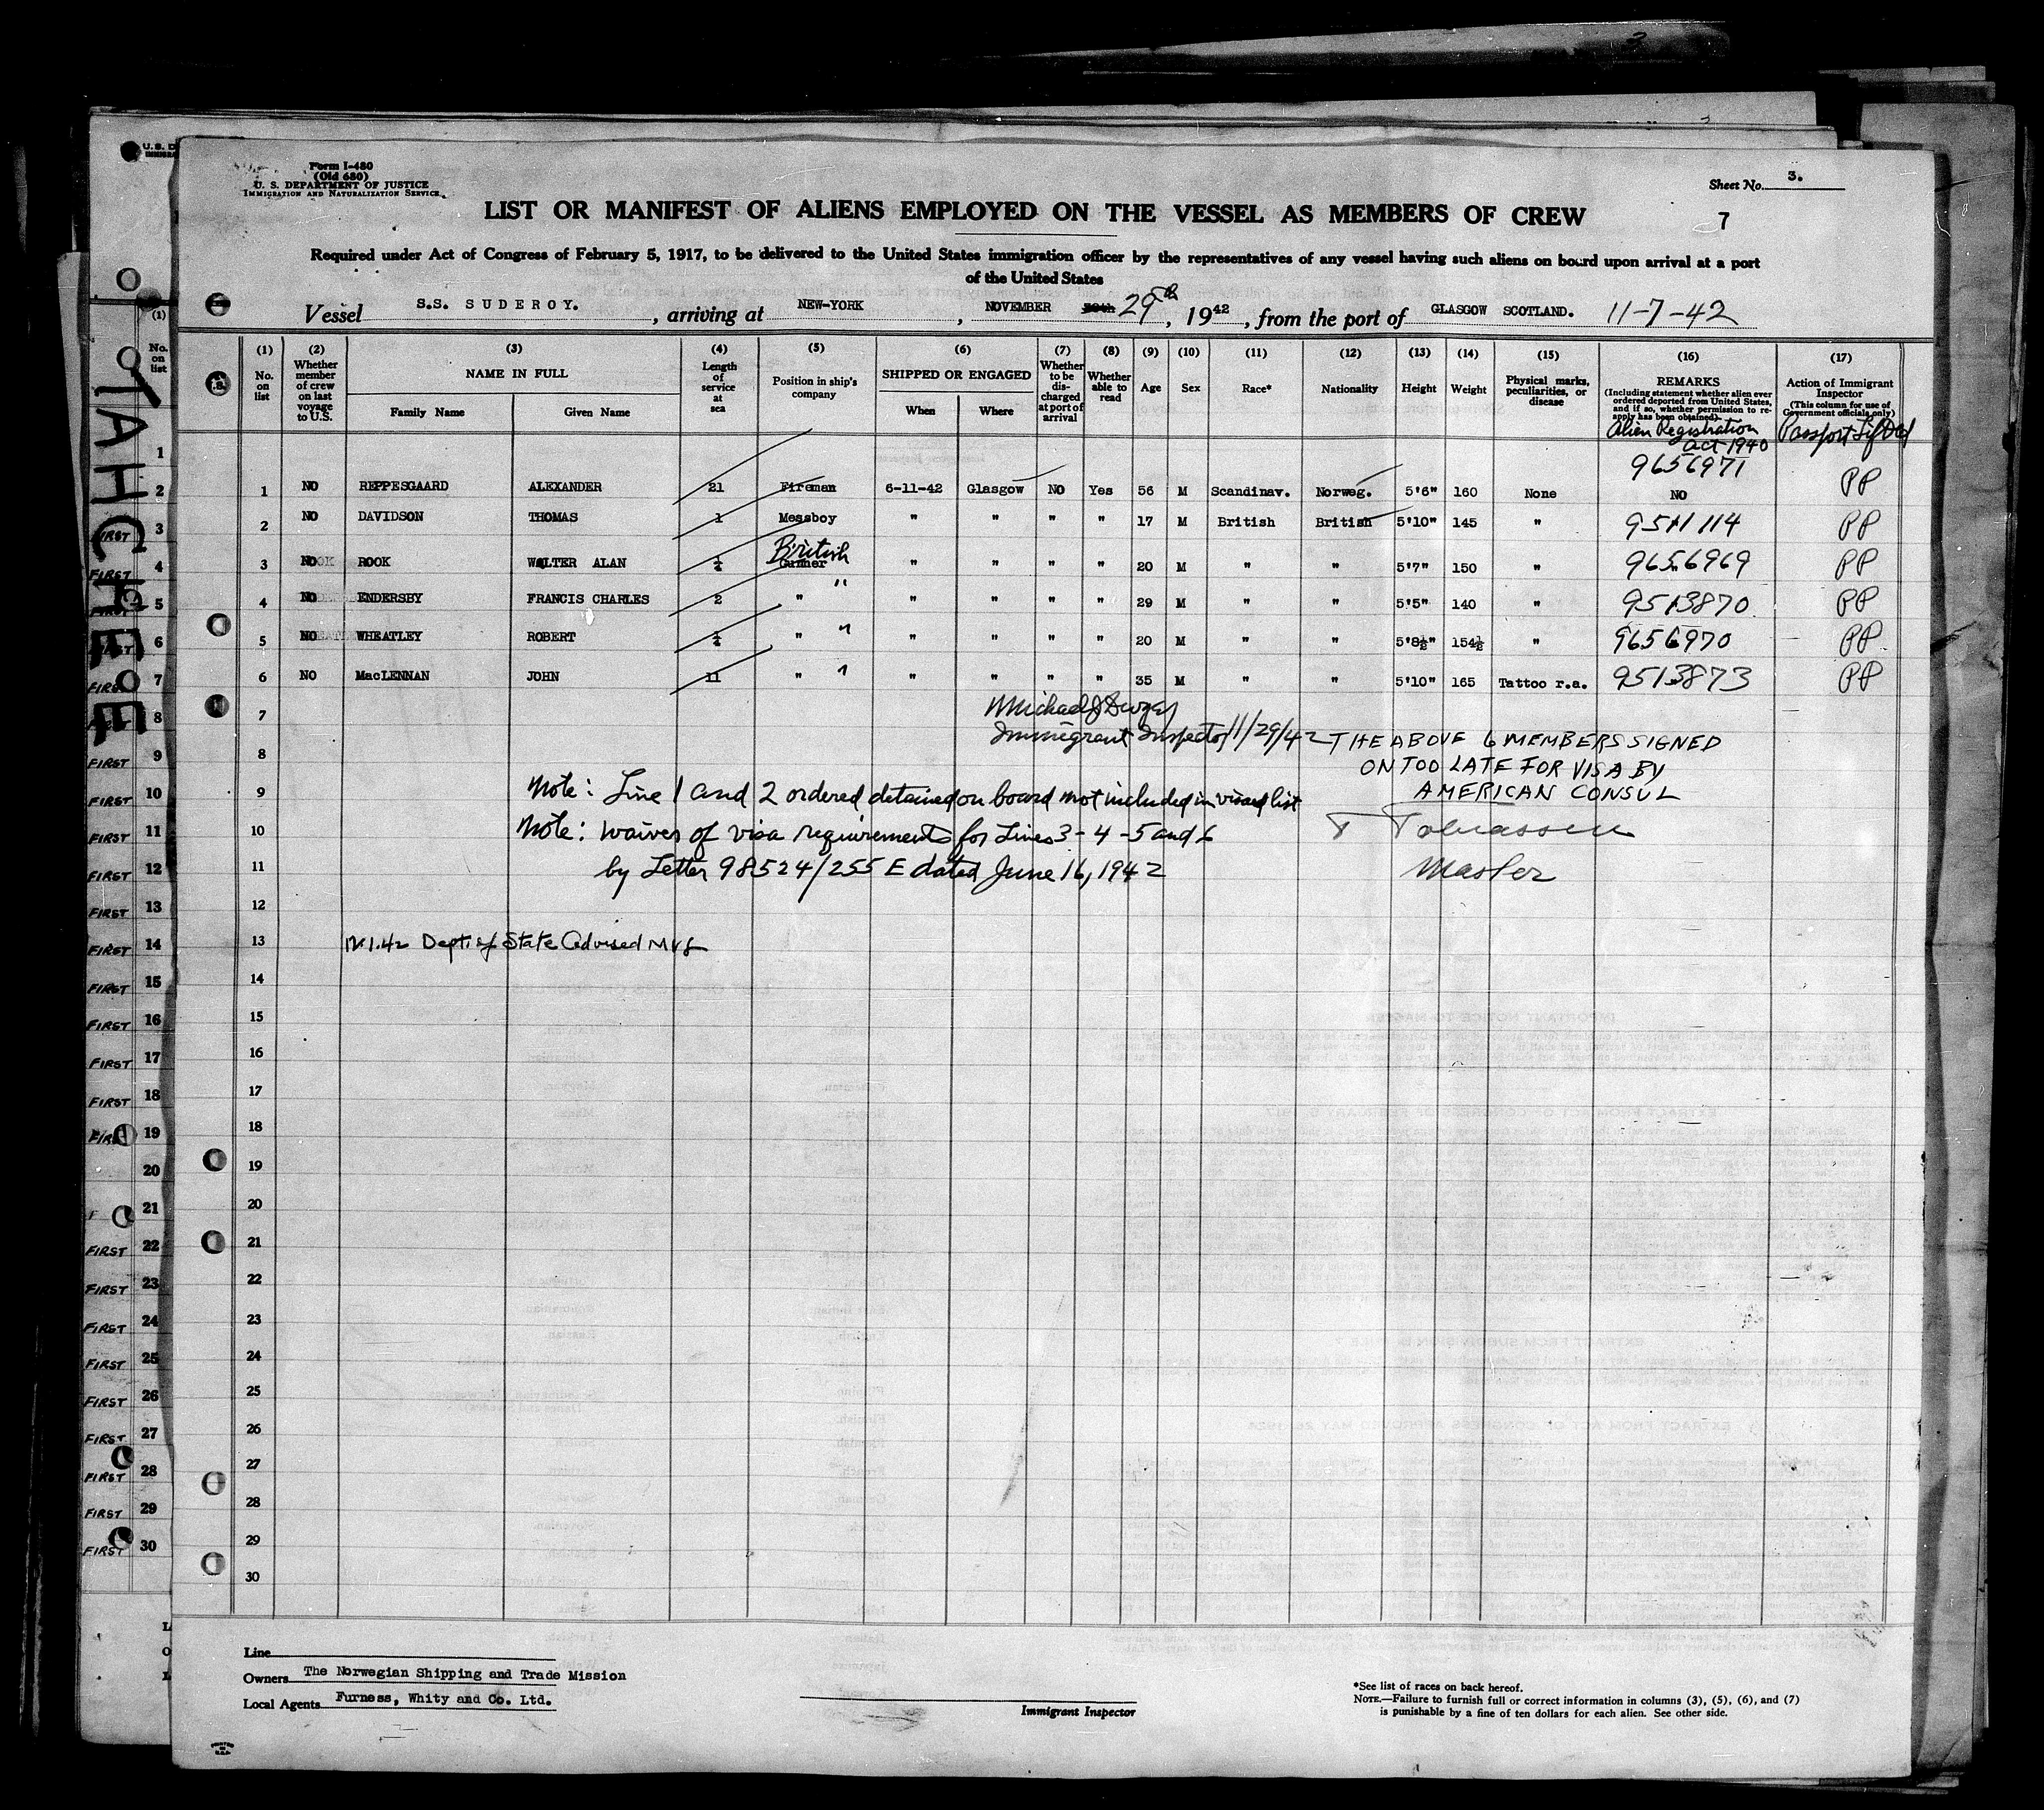 Form I-480
(Old 680)
U. S. DEPARTMENT OF JUSTICE
IMMIGRATION AND NATURALIZATION SERVICE
Sheet No. 3.
LIST OR MANIFEST OF ALIENS EMPLOYED ON THE VESSEL AS MEMBERS OF CREW
7
Required under Act of Congress of February 5, 1917, to be delivered to the United States immigration officer by the representatives of any vessel having such aliens on board upon arrival at a port
of the United States
Vessel S.S. SUDEROY. , arriving at NEW-YORK , NOVEMBER 29th , 1942 , from the port of GLASGOW SCOTLAND. 11-7-42
(1) No. on list
(2) Whether member of crew on last voyage to U.S.
(3) NAME IN FULL Family Name Given Name
(4) Length of service at sea
(5) Position in ship's company
(6) SHIPPED OR ENGAGED When Where
(7) Whether to be discharged at port of arrival
(8) Whether able to read
(9) Age
(10) Sex
(11) Race*
(12) Nationality
(13) Height
(14) Weight
(15) Physical marks, peculiarities, or disease
(16) REMARKS (Including statement whether alien ever ordered deported from United States, and if so, whether permission to reapply has been obtained)
(17) Action of Immigrant Inspector (This column for use of Government officials only)
Alien Registration Act 1940 Passport Lifted
1 NO REPPESGAARD ALEXANDER 21 Fireman 6-11-42 Glasgow NO Yes 56 M Scandinav. Norweg. 5'6" 160 None 9656971 NO PP
2 NO DAVIDSON THOMAS 1 Messboy " " " " 17 M British British 5'10" 145 " 9511114 PP
3 NO ROOK WALTER ALAN ¼ British Gunner " " " " 20 M " " 5'7" 150 " 9656969 PP
4 NO ENDERSBY FRANCIS CHARLES 2 " " " " " " 29 M " " 5'5" 140 " 9513870 PP
5 NO WHEATLEY ROBERT ¼ " " " " " " 20 M " " 5'8½" 154½ " 9656970 PP
6 NO MacLENNAN JOHN 11 " " " " " " 35 M " " 5'10" 165 Tattoo r.a. 9513873 PP
7
Immigrant Inspector 11/29/42
8
THE ABOVE 6 MEMBERS SIGNED
ON TOO LATE FOR VISA BY
AMERICAN CONSUL
9 Note: Line 1 and 2 ordered detained on board not included in visaed list
10 Note: waiver of visa requirements for Lines 3-4-5 and 6
T Tobiassen
11 by Letter 98524/255 E dated June 16, 1942
Master
12
13 12.1.42 Dept. of State Advised
14
15
16
17
18
19
20
21
22
23
24
25
26
27
28
29
30
Line
Owners The Norwegian Shipping and Trade Mission
Local Agents Furness, Whity and Co. Ltd.
Immigrant Inspector
*See list of races on back hereof.
NOTE.—Failure to furnish full or correct information in columns (3), (5), (6), and (7)
is punishable by a fine of ten dollars for each alien. See other side.